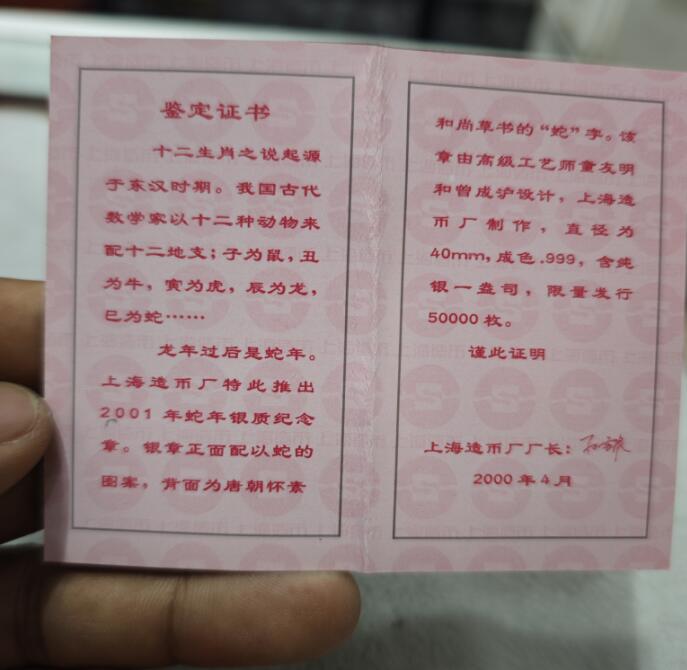 鉴定证书
十二生肖之说起源
于东汉时期。我国古代
数学家以十二种动物来
配十二地支；子为鼠，丑
为牛，寅为虎，辰为龙，
巳为蛇……
龙年过后是蛇年。
上海造币厂特此推出
2001年蛇年银质纪念
章。银章正面配以蛇的
图案，背面为唐朝怀素
和尚草书的“蛇”字。该
章由高级工艺师童友明
和曾成沪设计，上海造
币厂制作，直径为
40mm，成色.999，含纯
银一盎司，限量发行
50000枚。
谨此证明
上海造币厂厂长：
2000年4月